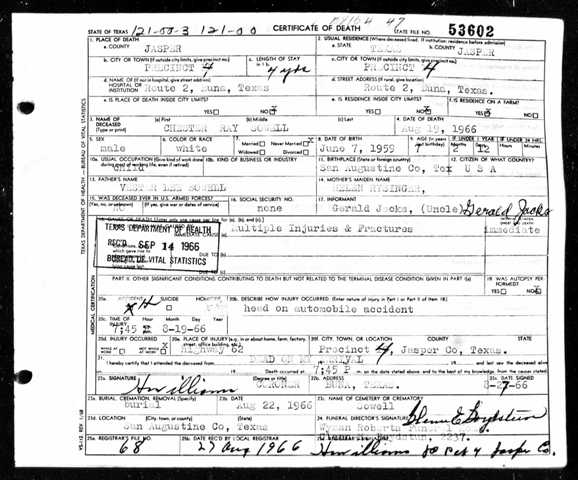 STATE OF TEXAS 121-00-3 121-00 CERTIFICATE OF DEATH STATE FILE NO. 53602
1. PLACE OF DEATH
a. COUNTY JASPER
2. USUAL RESIDENCE (Where deceased lived. If institution: residence before admission)
a. STATE TEXAS b. COUNTY JASPER
b. CITY OR TOWN (If outside city limits, give precinct no.) PRECINCT 4
c. LENGTH OF STAY in 1 b 4 yrs
c. CITY OR TOWN (If outside city limits, give precinct no.) PRECINCT 4
d. NAME OF (If not in hospital, give street address) HOSPITAL OR INSTITUTION Route 2, Buna, Texas
d. STREET ADDRESS (If rural, give location) Route 2, Buna, Texas.
e. IS PLACE OF DEATH INSIDE CITY LIMITS? YES NO X
e. IS RESIDENCE INSIDE CITY LIMITS? YES NO X
f. IS RESIDENCE ON A FARM? YES NO X
3. NAME OF DECEASED (Type or print)
(a) First (b) Middle (c) Last
CHESTER RAY SOWELL
4. DATE OF DEATH Aug 19, 1966
5. SEX male
6. COLOR OR RACE white
7. Married Never Married X Widowed Divorced
8. DATE OF BIRTH June 7, 1959
9. AGE IF UNDER 1 YEAR IF UNDER 24 HRS.
7 12
10a. USUAL OCCUPATION (Give kind of work done during most of working life, even if retired) Child
10b. KIND OF BUSINESS OR INDUSTRY
11. BIRTHPLACE (State or foreign country) San Augustine Co, Tex
12. CITIZEN OF WHAT COUNTRY? U S A
13. FATHER'S NAME
14. MOTHER'S MAIDEN NAME
LEE SOWELL
HELEN
15. WAS DECEASED EVER IN U.S. ARMED FORCES? no
16. SOCIAL SECURITY NO. none
17. INFORMANT Gerald Jacks, (Uncle) Gerald Jacks
18. CAUSE OF DEATH
Multiple Injuries & Fractures immediate
TEXAS DEPARTMENT OF HEALTH
REC'D SEP 14 1966
BUREAU OF VITAL STATISTICS
DUE TO (b)
DUE TO (c)
PART II. OTHER SIGNIFICANT CONDITIONS CONTRIBUTING TO DEATH BUT NOT RELATED TO THE TERMINAL DISEASE CONDITION GIVEN IN PART I(a)
19. WAS AUTOPSY PERFORMED? YES NO X
20a. ACCIDENT SUICIDE HOMICIDE
20b. DESCRIBE HOW INJURY OCCURRED (Enter nature of injury in Part I or Part II of item 18)
head on automobile accident
20c. TIME OF INJURY Hour Month Day Year
7:45 8-19-66
20d. INJURY OCCURRED
20e. PLACE OF INJURY (e.g. in or about home, farm, factory, street, office building, etc.) Highway 62
20f. CITY, TOWN, OR LOCATION COUNTY STATE
Precinct 4, Jasper Co, Texas.
21. I hereby certify that I attended the deceased from DEAD ON MY ARRIVAL
Death occurred at 7:45 P
22a. SIGNATURE (Degree or title) CORONER
22b. ADDRESS BUNA, TEXAS.
22c. DATE SIGNED
23a. BURIAL, CREMATION, REMOVAL (Specify) burial
23b. DATE Aug 22, 1966
23c. NAME OF CEMETERY OR CREMATORY Sowell
23d. LOCATION (City, town, or county) (State)
San Augustine Co, Texas
24. FUNERAL DIRECTOR'S SIGNATURE
Wyman Roberts Funeral Home,
2237.
25a. REGISTRAR'S FILE NO. 68
25b. DATE REC'D BY LOCAL REGISTRAR 27 Aug 1966
25c. REGISTRAR'S SIGNATURE
TEXAS DEPARTMENT OF HEALTH — BUREAU OF VITAL STATISTICS
MEDICAL CERTIFICATION